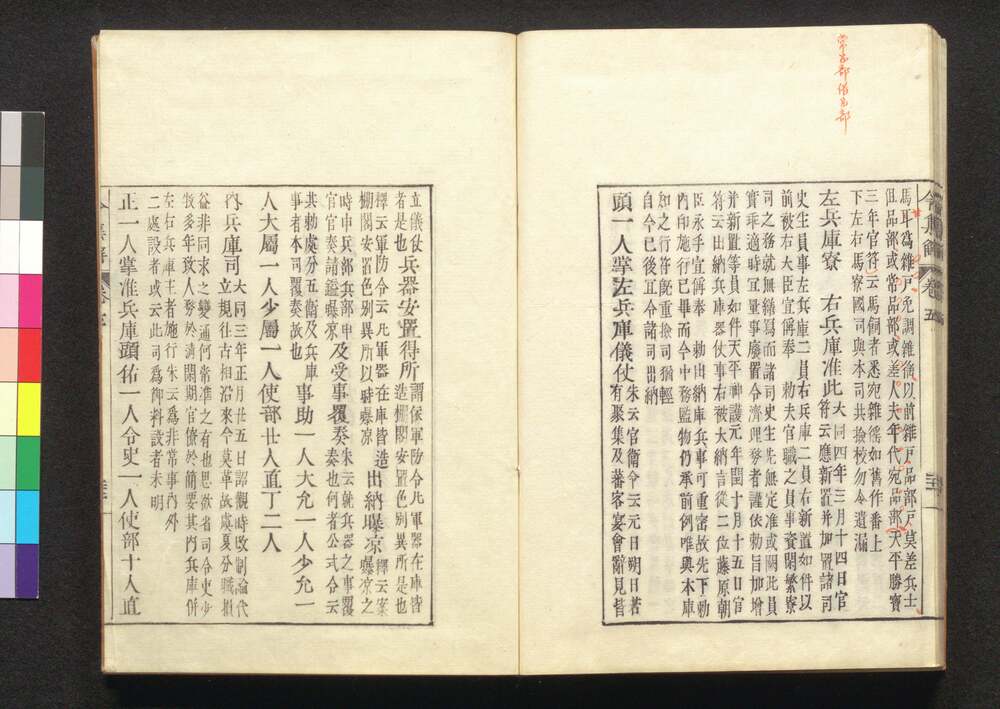 常品部借品部
馬耳為雜戶免調雜徭以前雜戶品部戶莫差兵士
但品部或常品部或差人夫年代宛品部 天平勝寶
三年官符云馬飼者悉宛雜徭如舊作番上
下左右馬寮國司與本司共撿校勿令遺漏
左兵庫寮 右兵庫准此 大同四年三月十四日官
符云應新置并加置諸司
史生員事左兵庫二員右兵庫二員右新置如件以
前被右大臣宣偁奉 勅夫官職之員事資閑繁寮
司之務就無緜寫而諸司史生先無定准或闕此員
實乖適時宜量事廢置令濟理務者謹依勅旨加增
并新置等員如件天平神護元年閏十月十五日官
符云出納兵庫器仗事右被大納言從二位藤原朝
臣永手宣偁奉 勅出納庫兵事可重審故先下勅
內印施行已畢而今中務監物仍承前例唯與本庫
知之行符既重撿司猶輕
自今已後宜令諸司出納
頭一人掌左兵庫儀仗 朱云宮衛令云元日朔日若
有聚集及蕃客宴會辭見皆
立儀仗
者是也 兵器安置得所 謂依軍防令凡軍器在庫皆
造棚閣安置色別異所是也
釋云軍防令云凡軍器在庫皆造
棚閣安置色別異所以時曝凉 出納曝凉 釋云案
曝凉之
時申兵部兵部申
官官奏請謚曝凉 及受事覆奏 朱云就兵器之事覆
奏也何者公式令云
其勅處分五衛及兵庫
事者本司覆奏故也 事助一人大允一人少允一
人大屬一人少屬一人使部廿人直丁二人
內兵庫司 大同三年正月廿五日詔觀時改制論代
立規往古相沿來今莫革故虞夏分職損
益非同求之變通何常准之有也思欲省司令史少
牧多年致人務於濟閑期官僚於簡要其內兵庫併
左右兵庫主者施行 朱云為非常事內外
二處設者 或云此司為御料設者未明
正一人掌准兵庫頭佑一人令史一人使部十人直
令集解
卷五